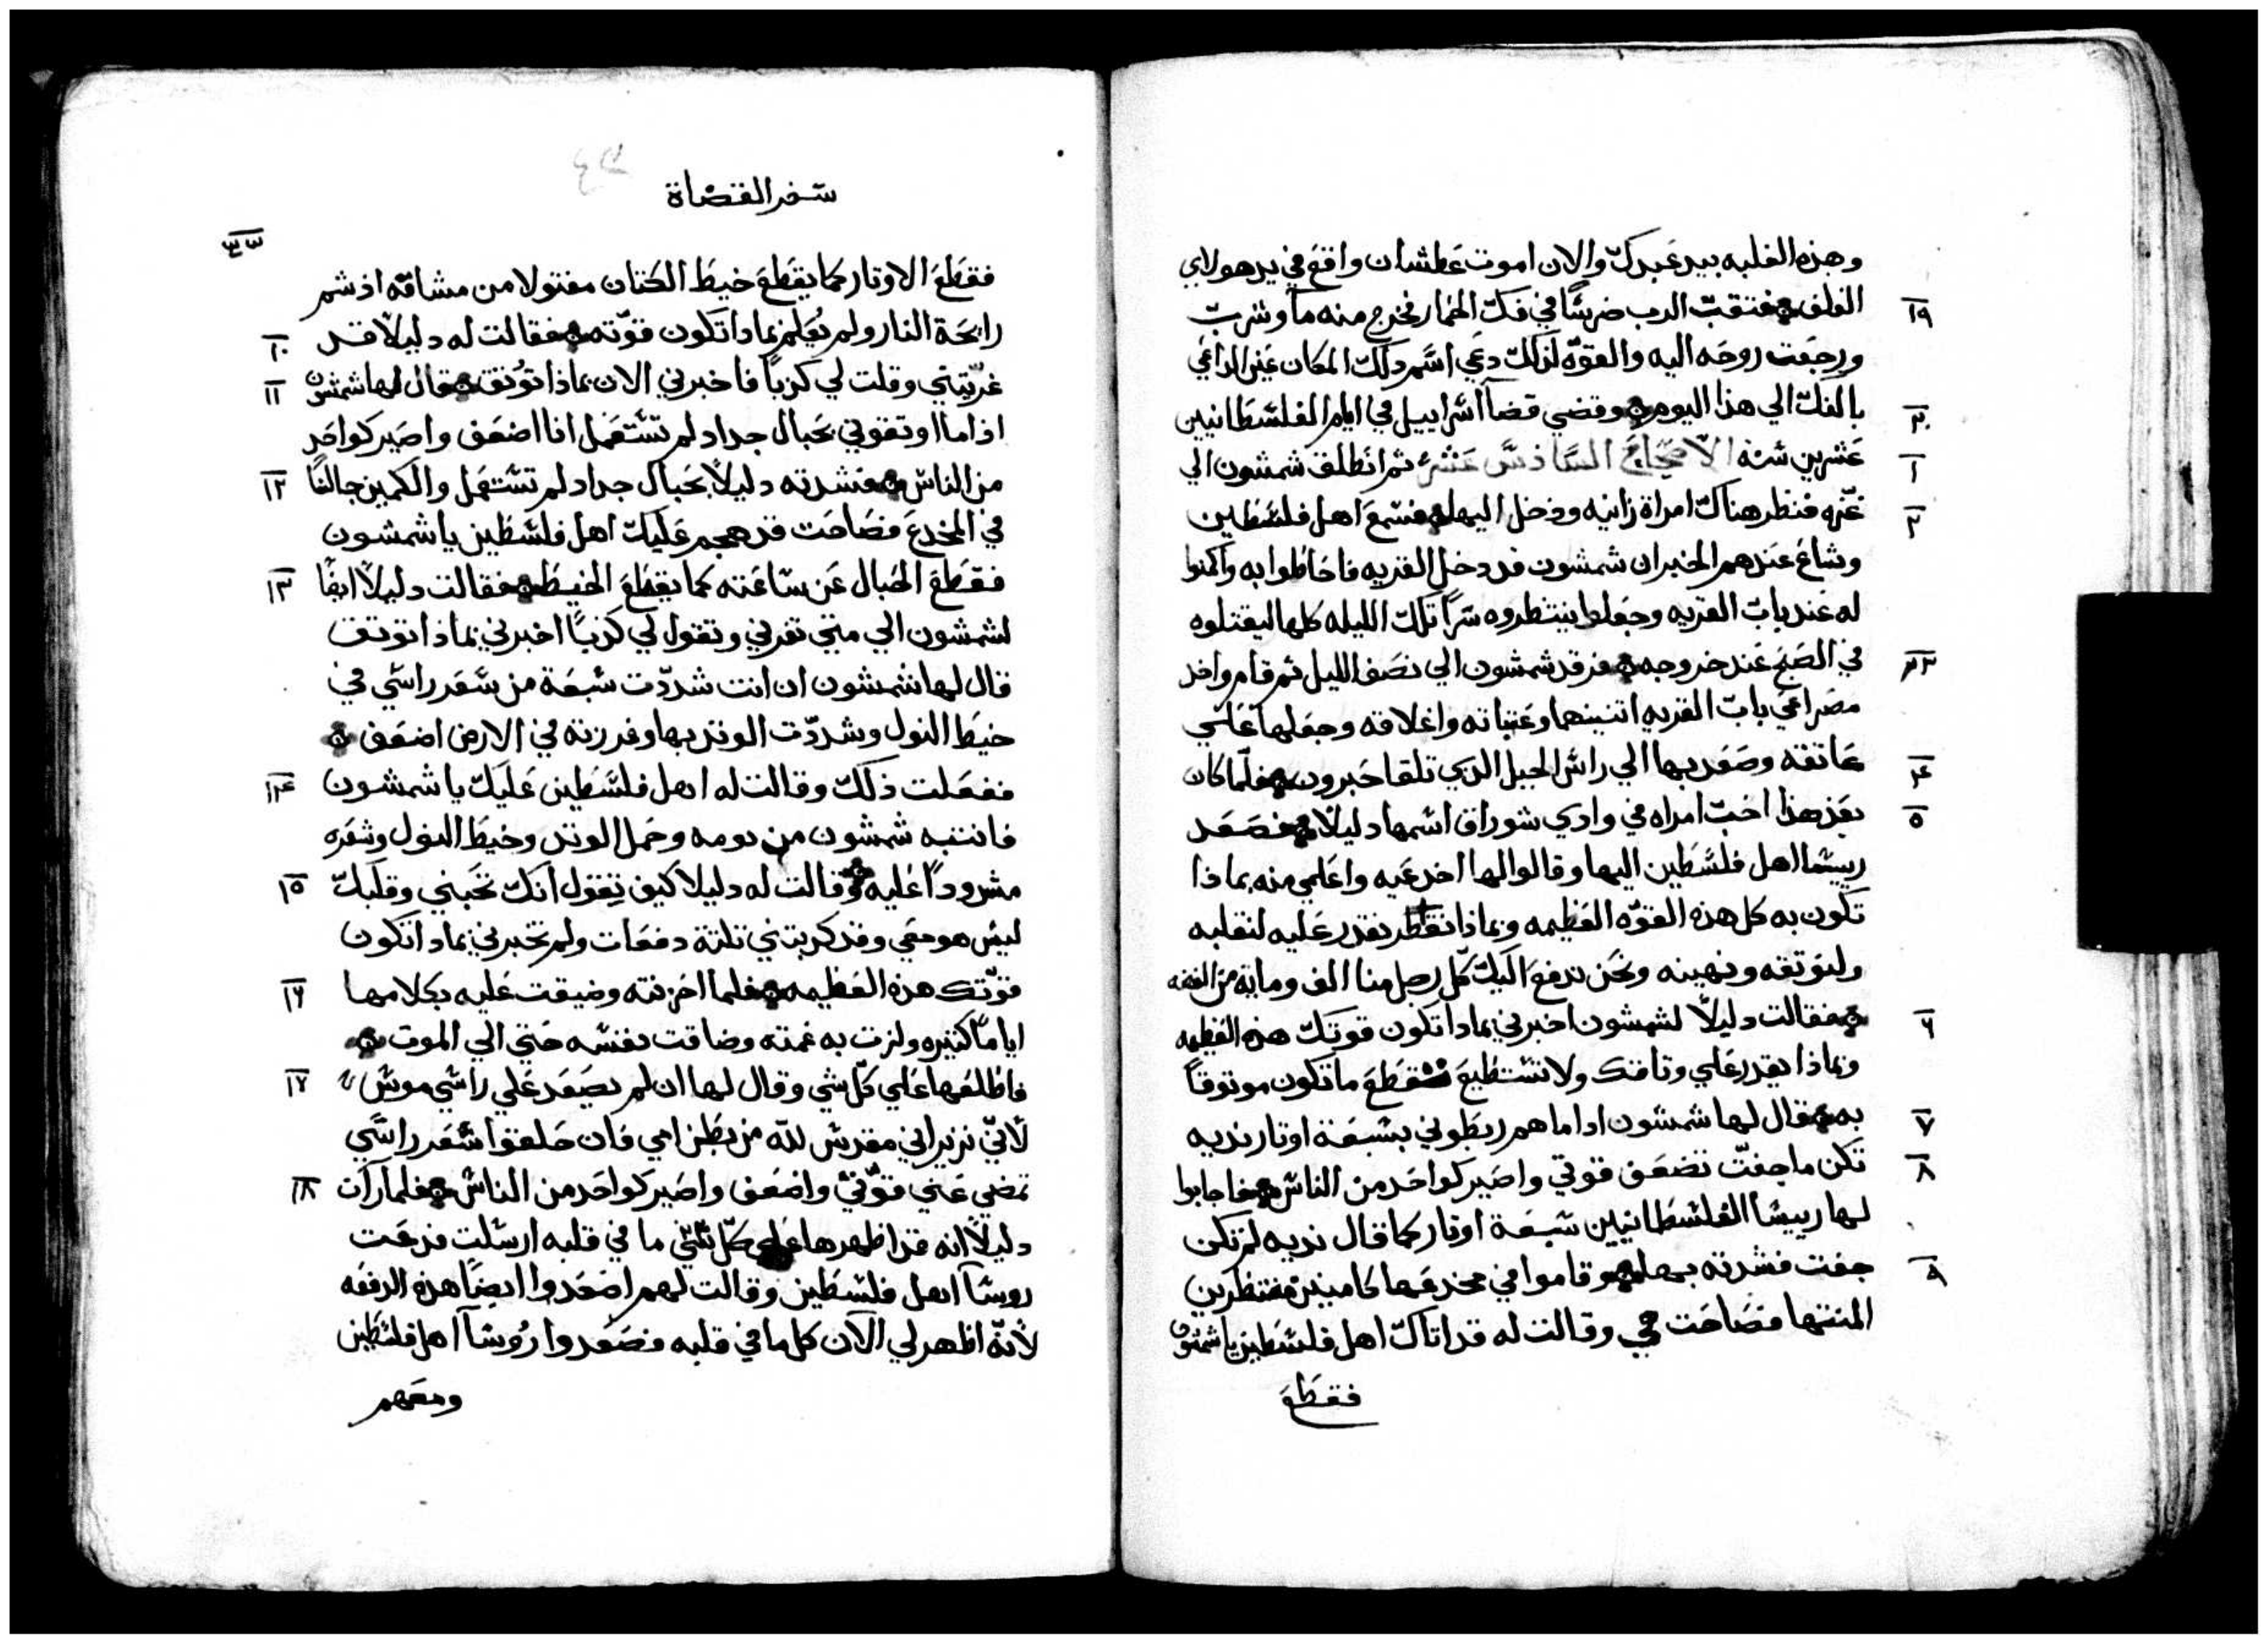 وهذه الغلبه بيد عبدك والان اموت عطشان واقع في يد هولاي
١٩ الغلف فتقب الرب ضرسًا في فك الحمار فخرج منه مآ وشرب
ورجعت روحه اليه والقوّه لذلك دعي اسم دلك المكان عين الداعي
٢٠ بالفك الي هذا اليوم وقضي قضآ اسراييل في ايام الفلسطانيين
١ عشرين سنه الاصحاح السادس عشر ثم انطلق شمشون الي
٢ غزه فنظر هناك امراة زانيه ودخل اليها فسمع اهل فلسطين
وشاع عندهم الخبر ان شمشون قد دخل القريه فاحاطوا به واكمنوا
له عند باب القريه وجعلوا ينتظروه سرًا تلك الليله كلها ليقتلوه
٣ في الصبح عند خروجه فرقد شمشون الي نصف الليل ثم قام واخد
مصراعي باب القريه اتنينهما وعتباته واغلاقه وجعلها علي
٤ عاتقه وصعد بها الي راس الجبل الذي تلقا حبرون فلما كان
٥ بعد هذا احب امراه في وادي شوراق اسمها دليلا فصعد
رييسا اهل فلسطين اليها وقالوا لها اخدعيه واعلمي منه بماذا
تكون به كل هذه القوّه العظيمه وبماذا نقدر عليه لنقلبه
ولنوتقه ونهينه ونحن ندفع اليك كل رجل منا الف ومايه من الفضه
٦ فقالت دليلًا لشمشون اخبرني بمادا تكون قوتك هذه العظيمه
وبماذا يقدر علي وتاقك ولا تستطيع تقطع ما تكون موتوقًا
٧ به فقال لها شمشون ادا ما هم ربطوني بسبعة اوتار نديه
٨ تكن ما جفت تضعف قوتي واصير كواحد من الناس فاجابوا
لها رييسا الفلسطانيين سبعة اوتار كما قال نديه لم تكن
٩ جفت فشدته بها وقاموا في مخدعها كامنين منتظرين
المنتها فصاحت هي وقالت له قد اتاك اهل فلسطين يا شمشون
فقطع
سفر القضاة
فقطع الاوتار كما يقطع خيط الكتان مفتولا من مشاقه اذ شم
١٠ رايحة النار ولم يُعلم بماداتكون قوّته فقالت له دليلًا قد
١١ غريتني وقلت لي كذبًا فاخبرني الان بماذا توُتق فقال لها شمشون
اذا ما اوتقوني بحبال جداد لم تستعمل انا اضعف واصير كواحد
١٢ من الناس فشدته دليلًا بحبال جداد لم تستعمل والكمين جالسًا
في المخدع فصاحت قد هجم عليك اهل فلسطين يا شمشون
١٣ فقطع الحبال عن ساعته كما يقطع الخيط فقالت دليلًا ايضًا
لشمشون الي متي تغرني وتقول لي كذبًا اخبرني بماذا توتق
قال لها شمشون ان انت شدّدت سبعة من شعر راسي في
خيط النول وشدّدت الوتد بها وغرزته في الارض اضعف
١٤ ففعلت ذلك وقالت له اهل فلسطين عليك يا شمشون
فانتبه شمشون من نومه وحمل الوتد وخيط النول وشعره
١٥ مشدودًا عليه وقالت له دليلا كيف تقول انك تحبني وقلبك
ليس هو معي وقد كربتني تلتة دفعات ولم تخبرني بمادا تكون
١٦ قوّتك هذه العظيمه فلما احزنته وضيقت عليه بكلامها
ايامًا كتيره ولزت به غمته وضاقت نفسه حتي الي الموت
١٧ فاطلعها علي كل شي وقال لها ان لم يصعد علي راسي موس
لأنّي نزير اني مقدس لله من بطن امي فان حلقوا شعر راسي
١٨ تمضي عني قوّتي واضعف واصير كواحد من الناس فلما رات
دليلًا انه قد اظهرها علي كل شي ما في قلبه ارسلت فدعت
روسآ اهل فلسطين وقالت لهم اصعدوا ايضًا هذه الدفعه
لأنّه اظهر لي الآن كل ما في قلبه فصعدوا رُوسآ اهل فلسطين
ومعهم